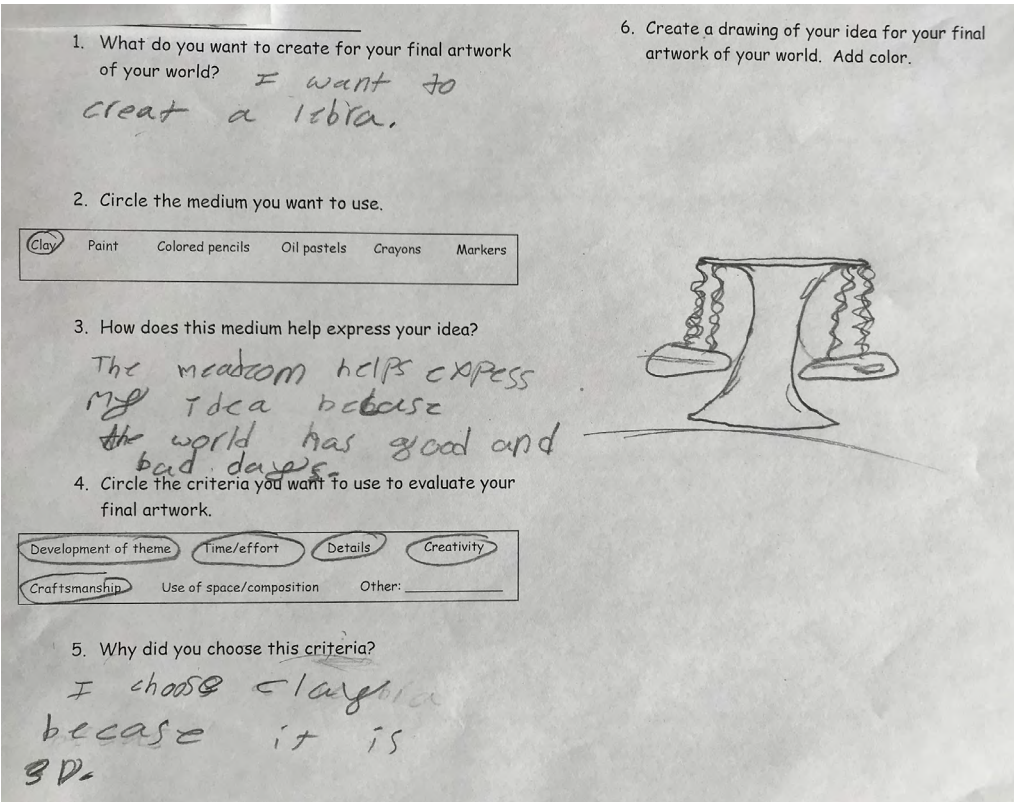 1. What do you want to create for your final artwork
of your world? I want to
creat a libra.
2. Circle the medium you want to use.
Clay Paint Colored pencils Oil pastels Crayons Markers
3. How does this medium help express your idea?
The meadzom helps expess
my idea becase
the world has good and
bad days.
4. Circle the criteria you want to use to evaluate your
final artwork.
Development of theme Time/effort Details Creativity
Craftsmanship Use of space/composition Other:
5. Why did you choose this criteria?
I choose clay
becase it is
3D.
6. Create a drawing of your idea for your final
artwork of your world. Add color.